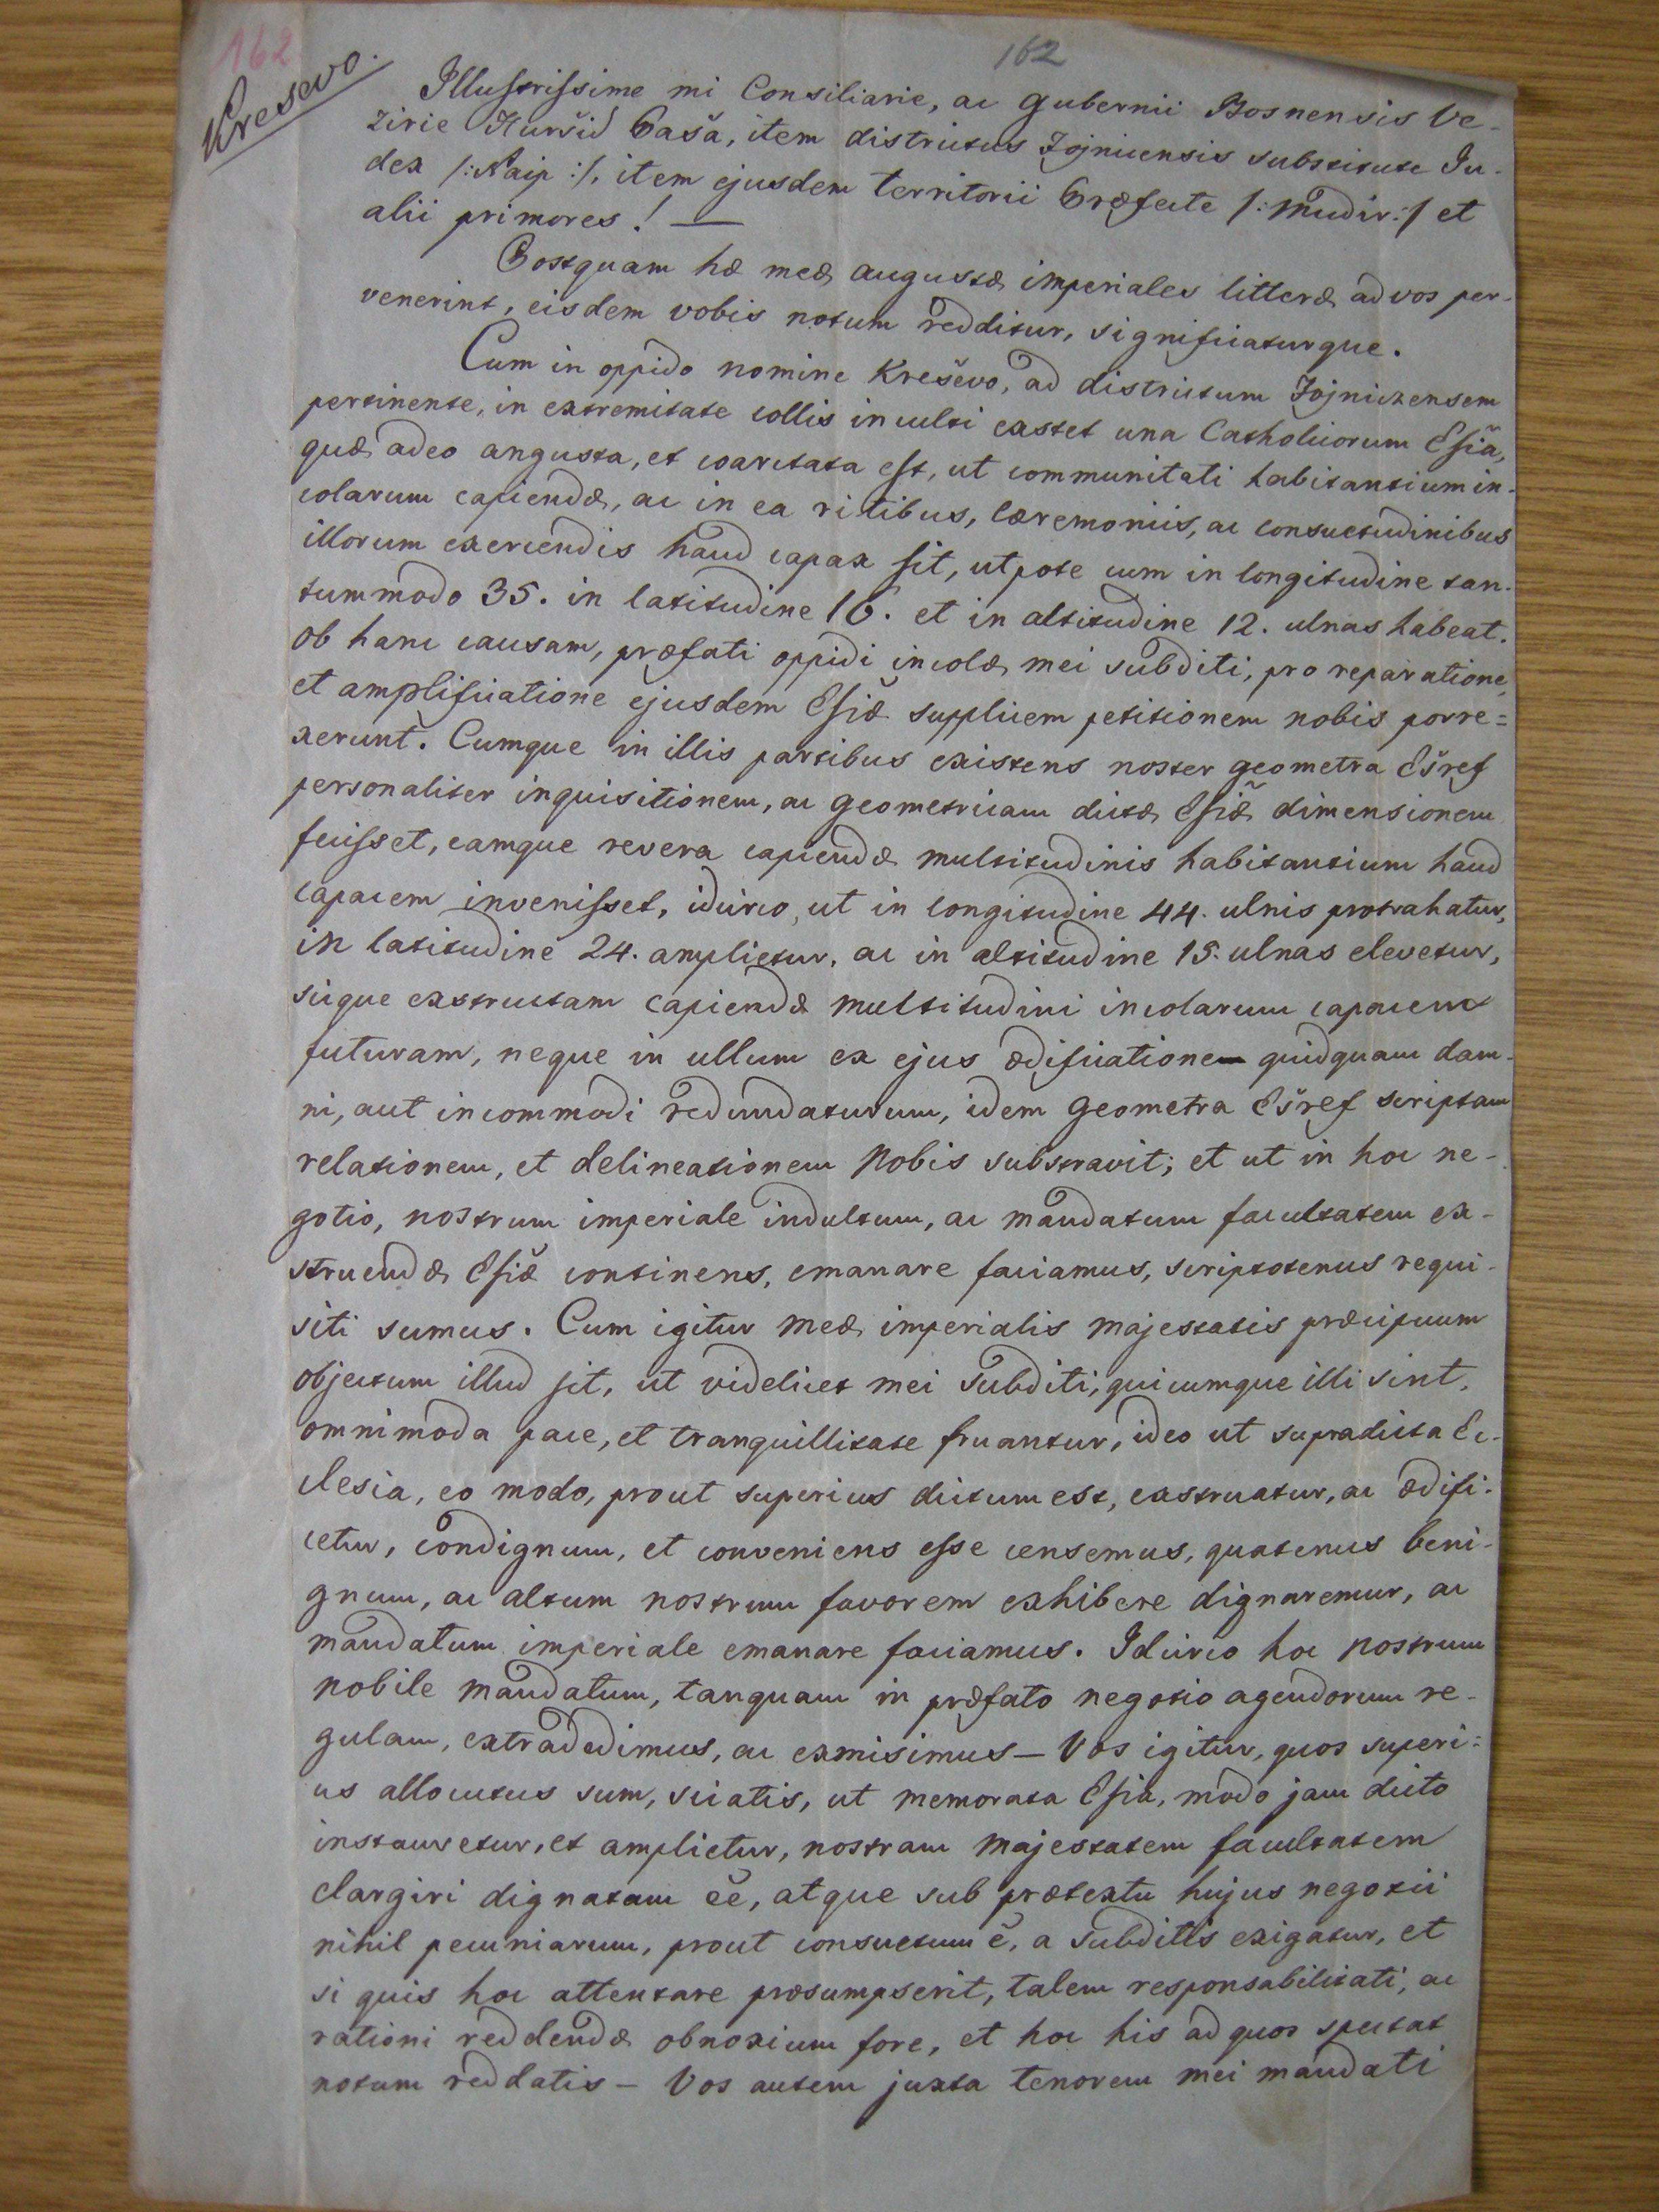 162
162
Kresevo.
Illustrissime mi Consiliarie, ac gubernii Bosnensis Ve-
zirie Huršid Paša, item districtus Fojnicensis substitute Ju-
dex /:Naip:/, item ejusdem territorii Præfecte /:Mudir:/ et
alii primores! —
Postquam hæ meæ augustæ imperiales litteræ ad vos per-
venerint, eisdem vobis notum redditur, significaturque.
Cum in oppido nomine Kreševo, ad districtum Fojniczensem
pertinente, in extremitate collis inculti extet una Catholicorum Ecsia,
quæ adeo angusta, et coarctata est, ut communitati habitantium in-
colarum capiendæ, ac in ea ritibus, cæremoniis, ac consuetudinibus
illorum exercendis haud capax sit, utpote cum in longitudine tan-
tummodo 35. in latitudine 16. et in altitudine 12. ulnas habeat.
Ob hanc causam, præfati oppidi incolæ mei subditi, pro reparatione,
et amplificatione ejusdem Ecsiæ supplicem petitionem nobis porre=
xerunt. Cumque in illis partibus existens noster geometra Ešref
personaliter inquisitionem, ac geometricam dictæ Ecsiæ dimensionem
fecisset, eamque revera capiendæ multitudinis habitantium haud
capacem invenisset, idcirco, ut in longitudine 44. ulnis protrahatur,
in latitudine 24. amplietur, ac in altitudine 15. ulnas elevetur,
sicque exstructam capiendæ multitudini incolarum capacem
futuram, neque in ullum ex ejus ædificatione quidquam dam-
ni, aut incommodi redundaturum, idem geometra Ešref scriptam
relationem, et delineationem Nobis substravit; et ut in hoc ne-
gotio, nostrum imperiale indultum, ac mandatum facultatem ex-
struendæ Ecsiæ continens, emanare faciamus, scriptotenus requi-
siti sumus. Cum igitur meæ imperialis majestatis præcipuum
objectum illud sit, ut videlicet mei Subditi, quicumque illi sint,
omnimoda pace, et tranquillitate fruantur, ideo ut supradicta Ec-
clesia, eo modo, prout superius dictum est, exstruatur, ac ædifi-
cetur, condignum, et conveniens esse censemus, quatenus beni-
gnum, ac altum nostrum favorem exhibere dignaremur, ac
mandatum imperiale emanare faciamus. Idcirco hoc nostrum
nobile mandatum, tanquam in præfato negotio agendorum re-
gulam, extradedimus, ac exmisimus — Vos igitur, quos superi=
us allocutus sum, sciatis, ut memorata Ecsia, modo jam dicto
instauretur, et amplietur, nostram Majestatem facultatem
elargiri dignatam ee, atque sub prætextu hujus negotii
nihil pecuniarum, prout consuetum e, a Subditis exigatur, et
si quis hoc attentare præsumpserit, talem responsabilitati, ac
rationi reddendæ obnoxium fore, et hoc his ad quos spectat
notum reddatis — Vos autem juxta tenorem mei mandati